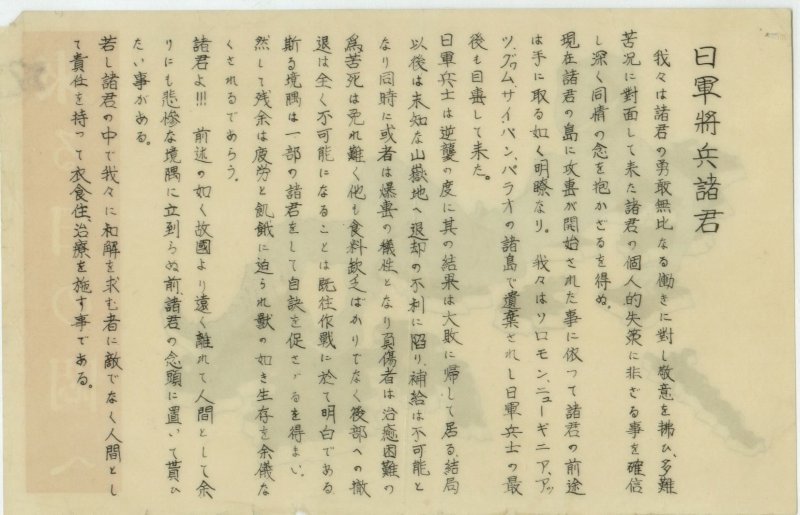 日軍將兵諸君
我々は諸君の勇敢無比なる働きに對し敬意を拂ひ、多難
苦況に對面して来た諸君の個人的失策に非ざる事を確信
し深く同情の念を抱かざるを得ぬ。
現在諸君の島に攻撃が開始された事に依つて諸君の前途
は手に取る如く明瞭なり。 我々はソロモン、ニューギニア、アッ
ツ、グワムサイパン、パラオの諸島で遺棄されし日軍兵士の最
後も目撃して来た。
日軍兵士は逆襲の度に其の結果は大敗に帰して居る、結局
以後は未知な山嶽地へ退却の不利に陥り、補給は不可能と
なり同時に或者は爆撃の犠牲となり負傷者は治癒困難の
為苦死は免れ難く他も食料欽乏ばかりでなく後部への撤
退は全く不可能になることは既往作戦に於て明白である
斯る境隅は一部の諸君をして自訣を促さゞるを得まい。
然して残余は疲労と飢餓に迫られ獣の如き生存を余儀な
くされるであらう。
諸君よ!!! 前述の如く故國より遠く離れて人間として余
りにも悲惨な境隅に立到らぬ前、諸君の念頭に置いて貰ひ
たい事がある。
若し諸君の中で我々に和解を求む者に敵でなく人間とし
て責任を持つて衣食住、治療を施す事である。